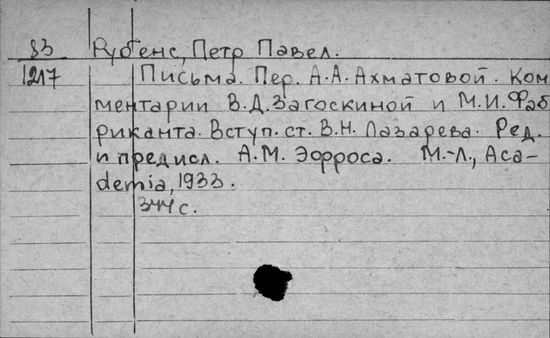 83 Рубенс, Петр Павел.
1217 Письма. Пер. А.А.Ахматовой. Ком
ментарии В.Д.Загоскиной и М.И.Фаб
риканта. Вступ. ст. В.Н. Лазарева. Ред.
и предисл. А.М. Эфроса. М.-Л., Aca-
demia, 1933.
344 с.